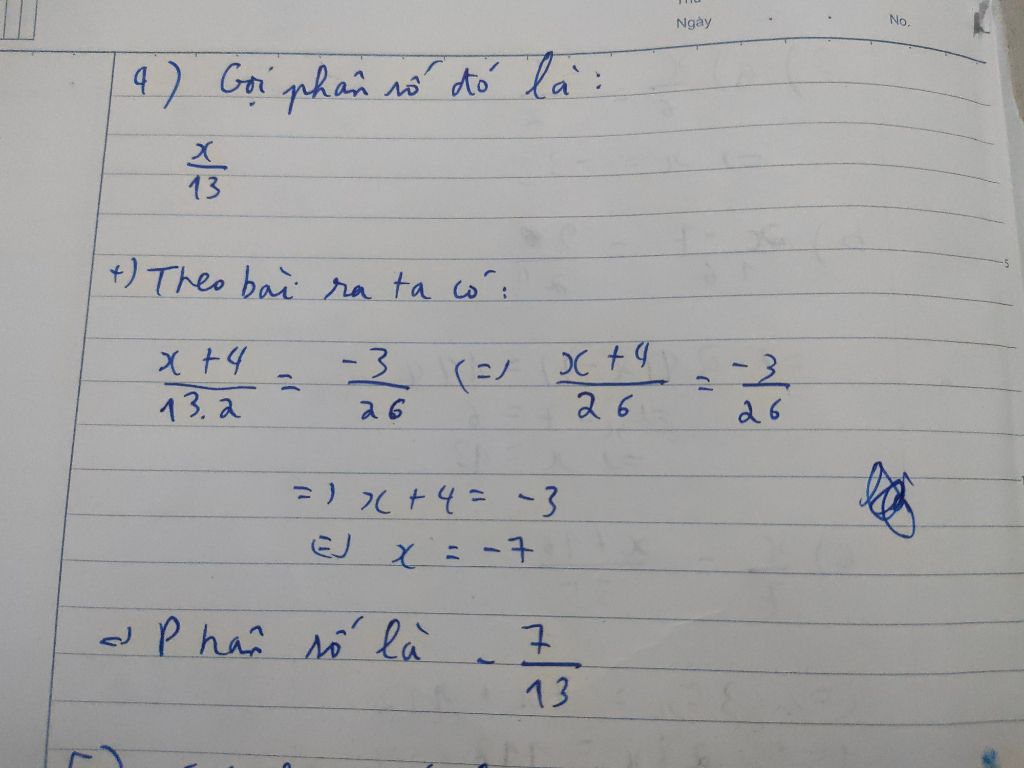 Ngày No.
4) Gọi phân số đó là:
x/13
+) Theo bài ra ta có:
(x + 4)/(13.2) = -3/26 <=> (x + 4)/26 = -3/26
=> x + 4 = -3
<=> x = -7
=> Phân số là - 7/13
5)